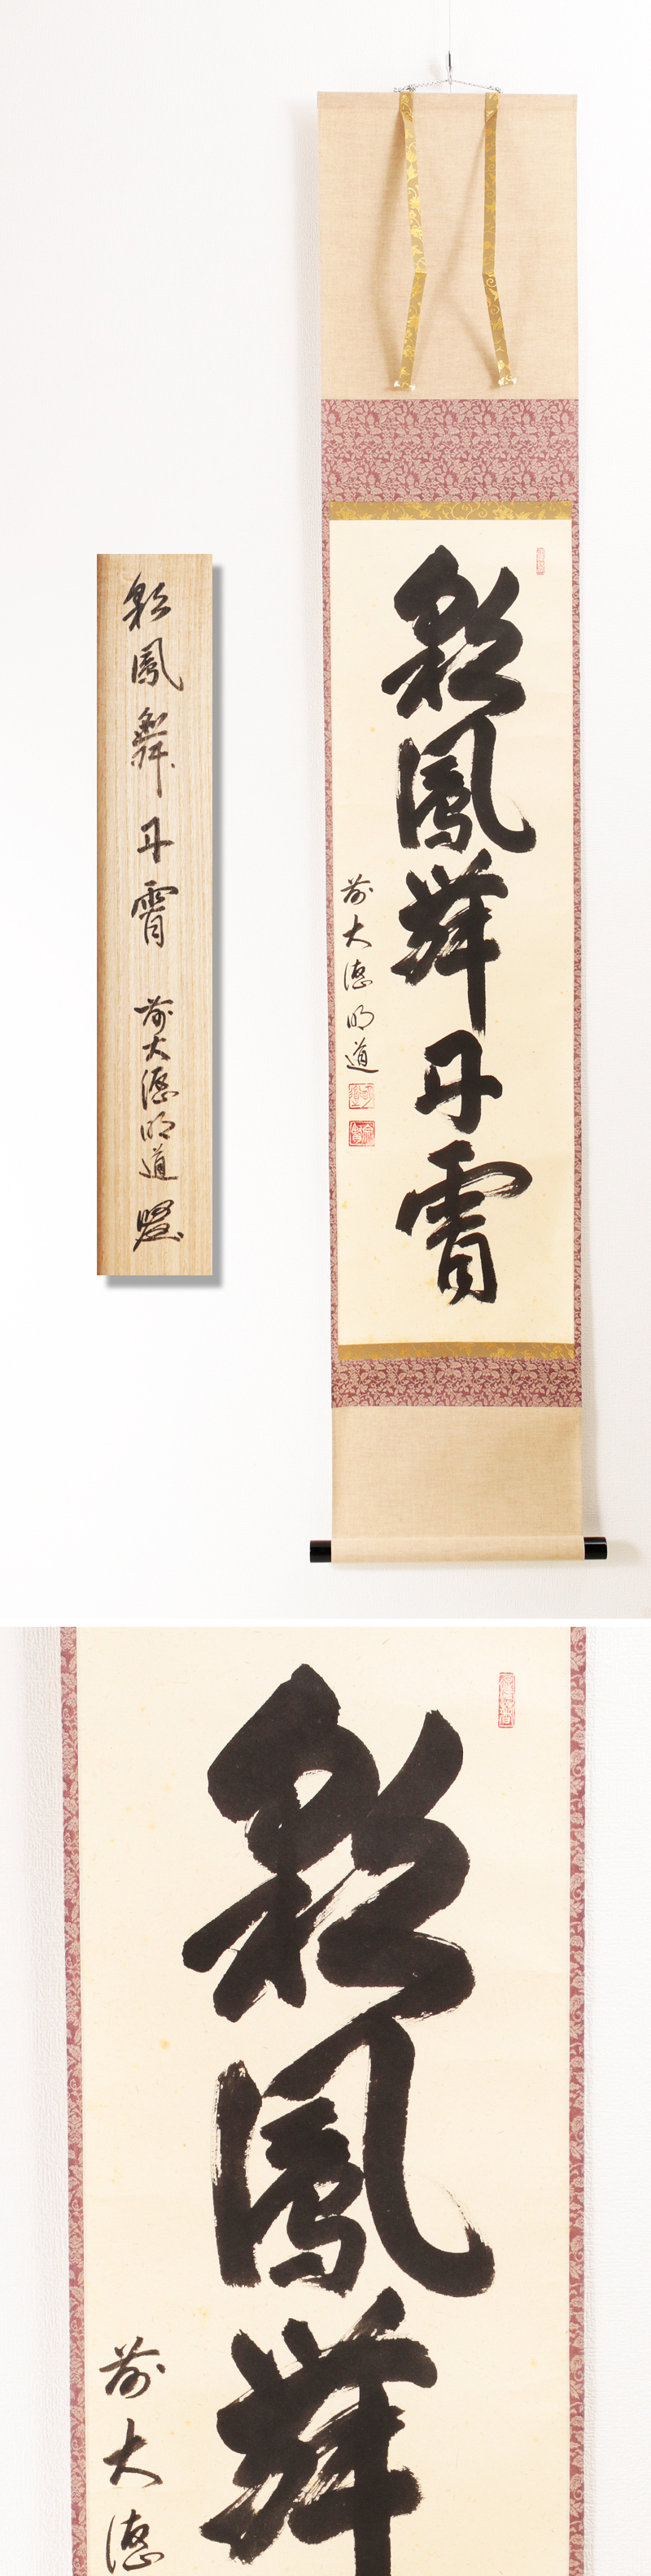 彩鳳舞丹霄
前大徳明道
彩鳳舞丹霄 前大徳明道
彩鳳舞
前大徳